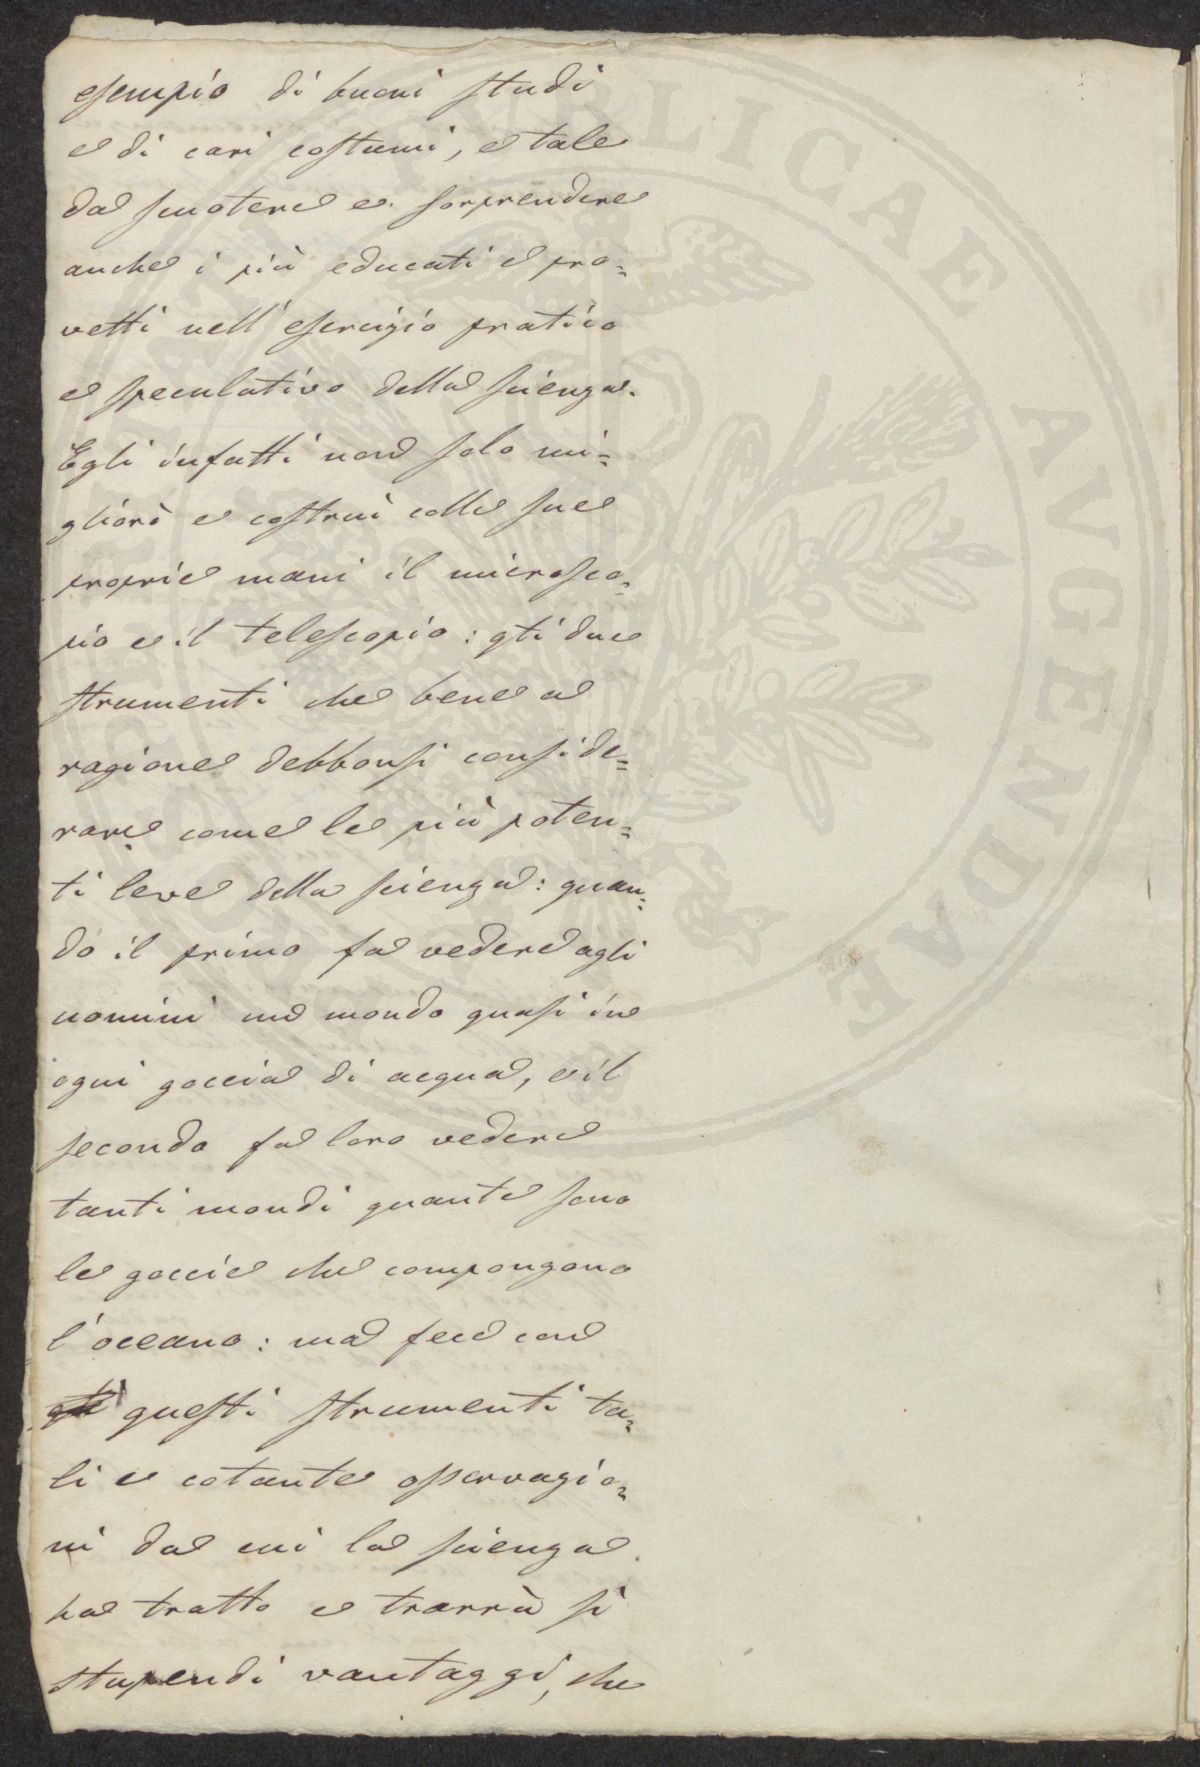 esempio di buoni studi
e di cari costumi, e tale
da scuotere e sorprendere
anche i più educati e pro=
vetti nell'esercizio pratico
e speculativo della scienza.
Egli infatti non solo mi=
gliorò e costruì colle sue
proprie mani il microsco=
pio e il telescopio: gli due
strumenti che bene a
ragione debbonsi conside=
rare come le più poten=
ti leve della scienza: quan=
do il primo fa vedere agli
uomini un mondo quasi in
ogni goccia di acqua, e il
secondo fa loro vedere
tanti mondi quante sono
le goccie che compongono
l'oceano: ma fece con
questi strumenti ta=
li e cotante osservazio=
ni da cui la scienza
ha tratto e trarrà sì
stupendi vantaggi, che
PUBLICAE AVGENDAE